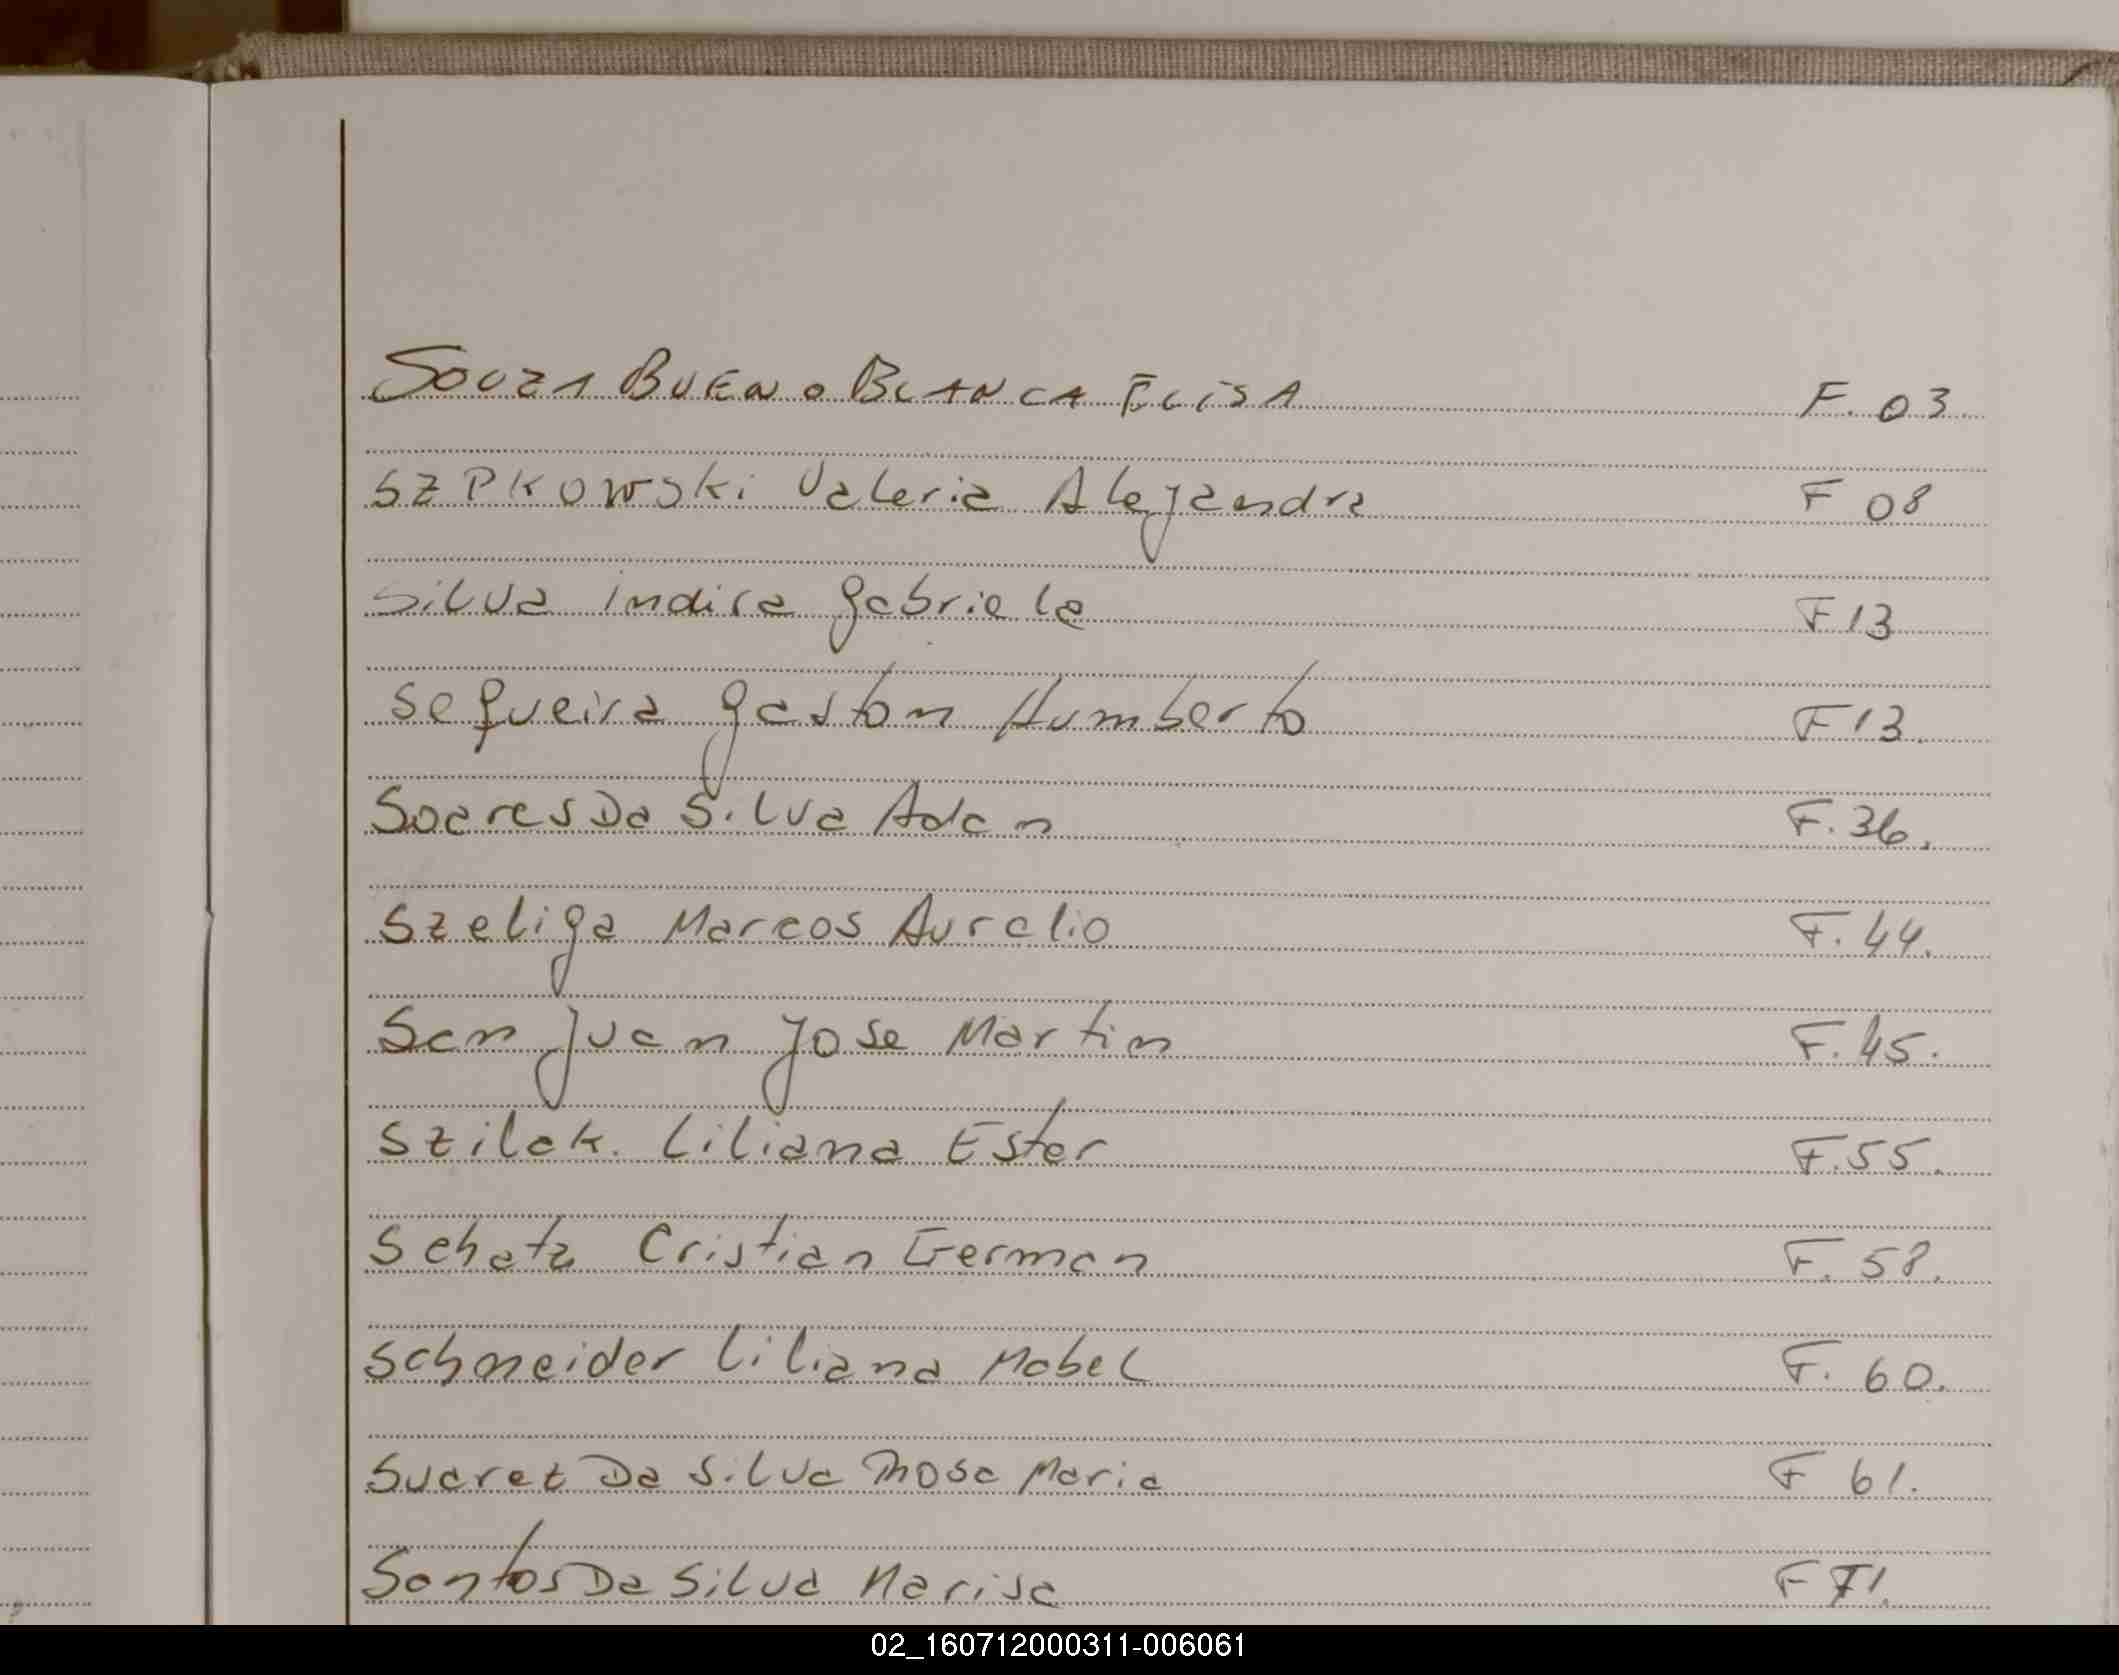 SOUZA BUENO BLANCA ELISA F. 03
SZPKOWSKi Valeria Alejandra F 08
Silva indira gabriela F 13
Sequeira gaston Humberto F 13.
Soares Da Silva Adan F. 36.
Szeliga Marcos Aurelio F. 44.
San Juan Jose Martin F. 45.
Szilak. Liliana Ester F. 55.
Schatz Cristian German F. 58.
Schneider Liliana Mabel F. 60.
Suarez Da Silva Rosa Maria F 61.
Santos Da Silva Marisa F 71.
02_160712000311-006061